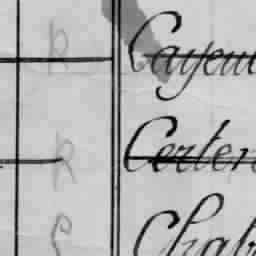 R Cayeu
R Certer
Chab